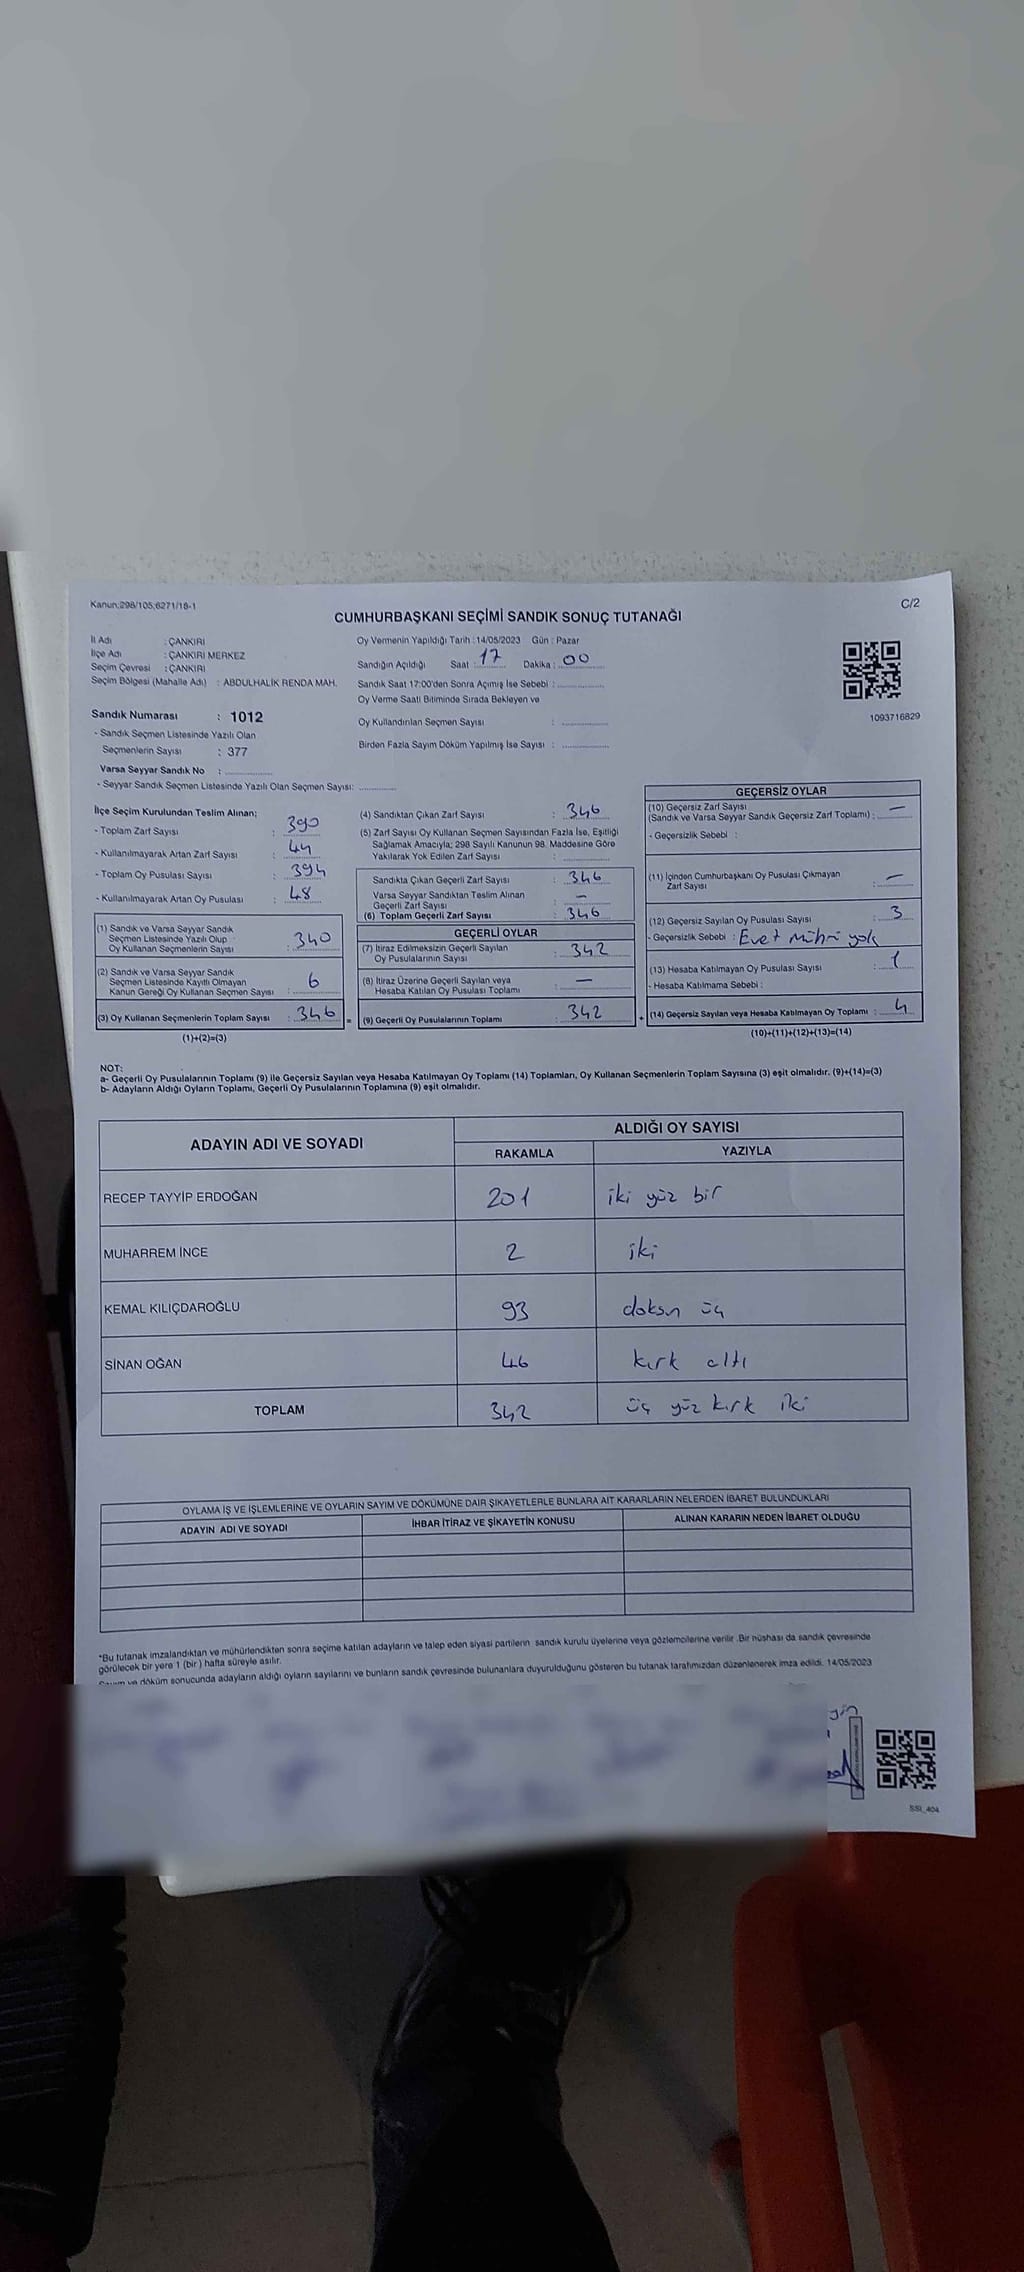 Kanun:298/105;6271/18-1
C/2
CUMHURBAŞKANI SEÇİMİ SANDIK SONUÇ TUTANAĞI
İl Adı : ÇANKIRI
İlçe Adı : ÇANKIRI MERKEZ
Seçim Çevresi : ÇANKIRI
Seçim Bölgesi (Mahalle Adı) : ABDULHALİK RENDA MAH.
Oy Vermenin Yapıldığı Tarih : 14/05/2023 Gün : Pazar
Sandığın Açıldığı Saat : 17 Dakika : 00
Sandık Saat 17:00'den Sonra Açımış İse Sebebi :
Oy Verme Saati Bitiminde Sırada Bekleyen ve
Oy Kullandırılan Seçmen Sayısı :
Birden Fazla Sayım Döküm Yapılmış İse Sayısı :
1093716829
Sandık Numarası : 1012
- Sandık Seçmen Listesinde Yazılı Olan
Seçmenlerin Sayısı : 377
Varsa Seyyar Sandık No :
- Seyyar Sandık Seçmen Listesinde Yazılı Olan Seçmen Sayısı:
İlçe Seçim Kurulundan Teslim Alınan;
- Toplam Zarf Sayısı : 390
- Kullanılmayarak Artan Zarf Sayısı : 44
- Toplam Oy Pusulası Sayısı : 394
- Kullanılmayarak Artan Oy Pusulası : 48
(1) Sandık ve Varsa Seyyar Sandık
Seçmen Listesinde Yazılı Olup
Oy Kullanan Seçmenlerin Sayısı : 340
(2) Sandık ve Varsa Seyyar Sandık
Seçmen Listesinde Kayıtlı Olmayan
Kanun Gereği Oy Kullanan Seçmen Sayısı : 6
(3) Oy Kullanan Seçmenlerin Toplam Sayısı : 346 =
(1)+(2)=(3)
(4) Sandıktan Çıkan Zarf Sayısı : 346
(5) Zarf Sayısı Oy Kullanan Seçmen Sayısından Fazla İse, Eşitliği
Sağlamak Amacıyla; 298 Sayılı Kanunun 98. Maddesine Göre
Yakılarak Yok Edilen Zarf Sayısı :
Sandıkta Çıkan Geçerli Zarf Sayısı : 346
Varsa Seyyar Sandıktan Teslim Alınan
Geçerli Zarf Sayısı : —
(6) Toplam Geçerli Zarf Sayısı : 346
GEÇERLİ OYLAR
(7) İtiraz Edilmeksizin Geçerli Sayılan
Oy Pusulalarının Sayısı : 342
(8) İtiraz Üzerine Geçerli Sayılan veya
Hesaba Katılan Oy Pusulası Toplamı : —
(9) Geçerli Oy Pusulalarının Toplamı : 342 +
GEÇERSİZ OYLAR
(10) Geçersiz Zarf Sayısı
(Sandık ve Varsa Seyyar Sandık Geçersiz Zarf Toplamı) : —
- Geçersizlik Sebebi :
(11) İçinden Cumhurbaşkanı Oy Pusulası Çıkmayan
Zarf Sayısı : —
(12) Geçersiz Sayılan Oy Pusulası Sayısı : 3
- Geçersizlik Sebebi : Evet mührü yok
(13) Hesaba Katılmayan Oy Pusulası Sayısı : 1
- Hesaba Katılmama Sebebi :
(14) Geçersiz Sayılan veya Hesaba Katılmayan Oy Toplamı : 4
(10)+(11)+(12)+(13)=(14)
NOT:
a- Geçerli Oy Pusulalarının Toplamı (9) ile Geçersiz Sayılan veya Hesaba Katılmayan Oy Toplamı (14) Toplamları, Oy Kullanan Seçmenlerin Toplam Sayısına (3) eşit olmalıdır. (9)+(14)=(3)
b- Adayların Aldığı Oyların Toplamı, Geçerli Oy Pusulalarının Toplamına (9) eşit olmalıdır.
ADAYIN ADI VE SOYADI ALDIĞI OY SAYISI
RAKAMLA YAZIYLA
RECEP TAYYİP ERDOĞAN 201 iki yüz bir
MUHARREM İNCE 2 iki
KEMAL KILIÇDAROĞLU 93 doksn üç
SİNAN OĞAN 46 kırk altı
TOPLAM 342 üç yüz kırk iki
OYLAMA İŞ VE İŞLEMLERİNE VE OYLARIN SAYIM VE DÖKÜMÜNE DAİR ŞİKAYETLERLE BUNLARA AİT KARARLARIN NELERDEN İBARET BULUNDUKLARI
ADAYIN ADI VE SOYADI İHBAR İTİRAZ VE ŞİKAYETİN KONUSU ALINAN KARARIN NEDEN İBARET OLDUĞU
*Bu tutanak imzalandıktan ve mühürlendikten sonra seçime katılan adayların ve talep eden siyasi partilerin sandık kurulu üyelerine veya gözlemcilerine verilir. Bir nüshası da sandık çevresinde
görülecek bir yere 1 (bir) hafta süreyle asılır.
Sayım ve döküm sonucunda adayların aldığı oyların sayılarını ve bunların sandık çevresinde bulunanlara duyurulduğunu gösteren bu tutanak tarafımızdan düzenlenerek imza edildi. 14/05/2023
SSI_404